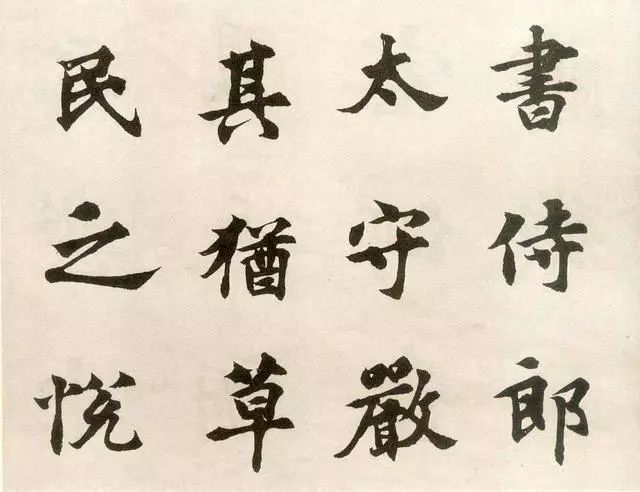 書侍郎
太守嚴
其猶草
民之悅